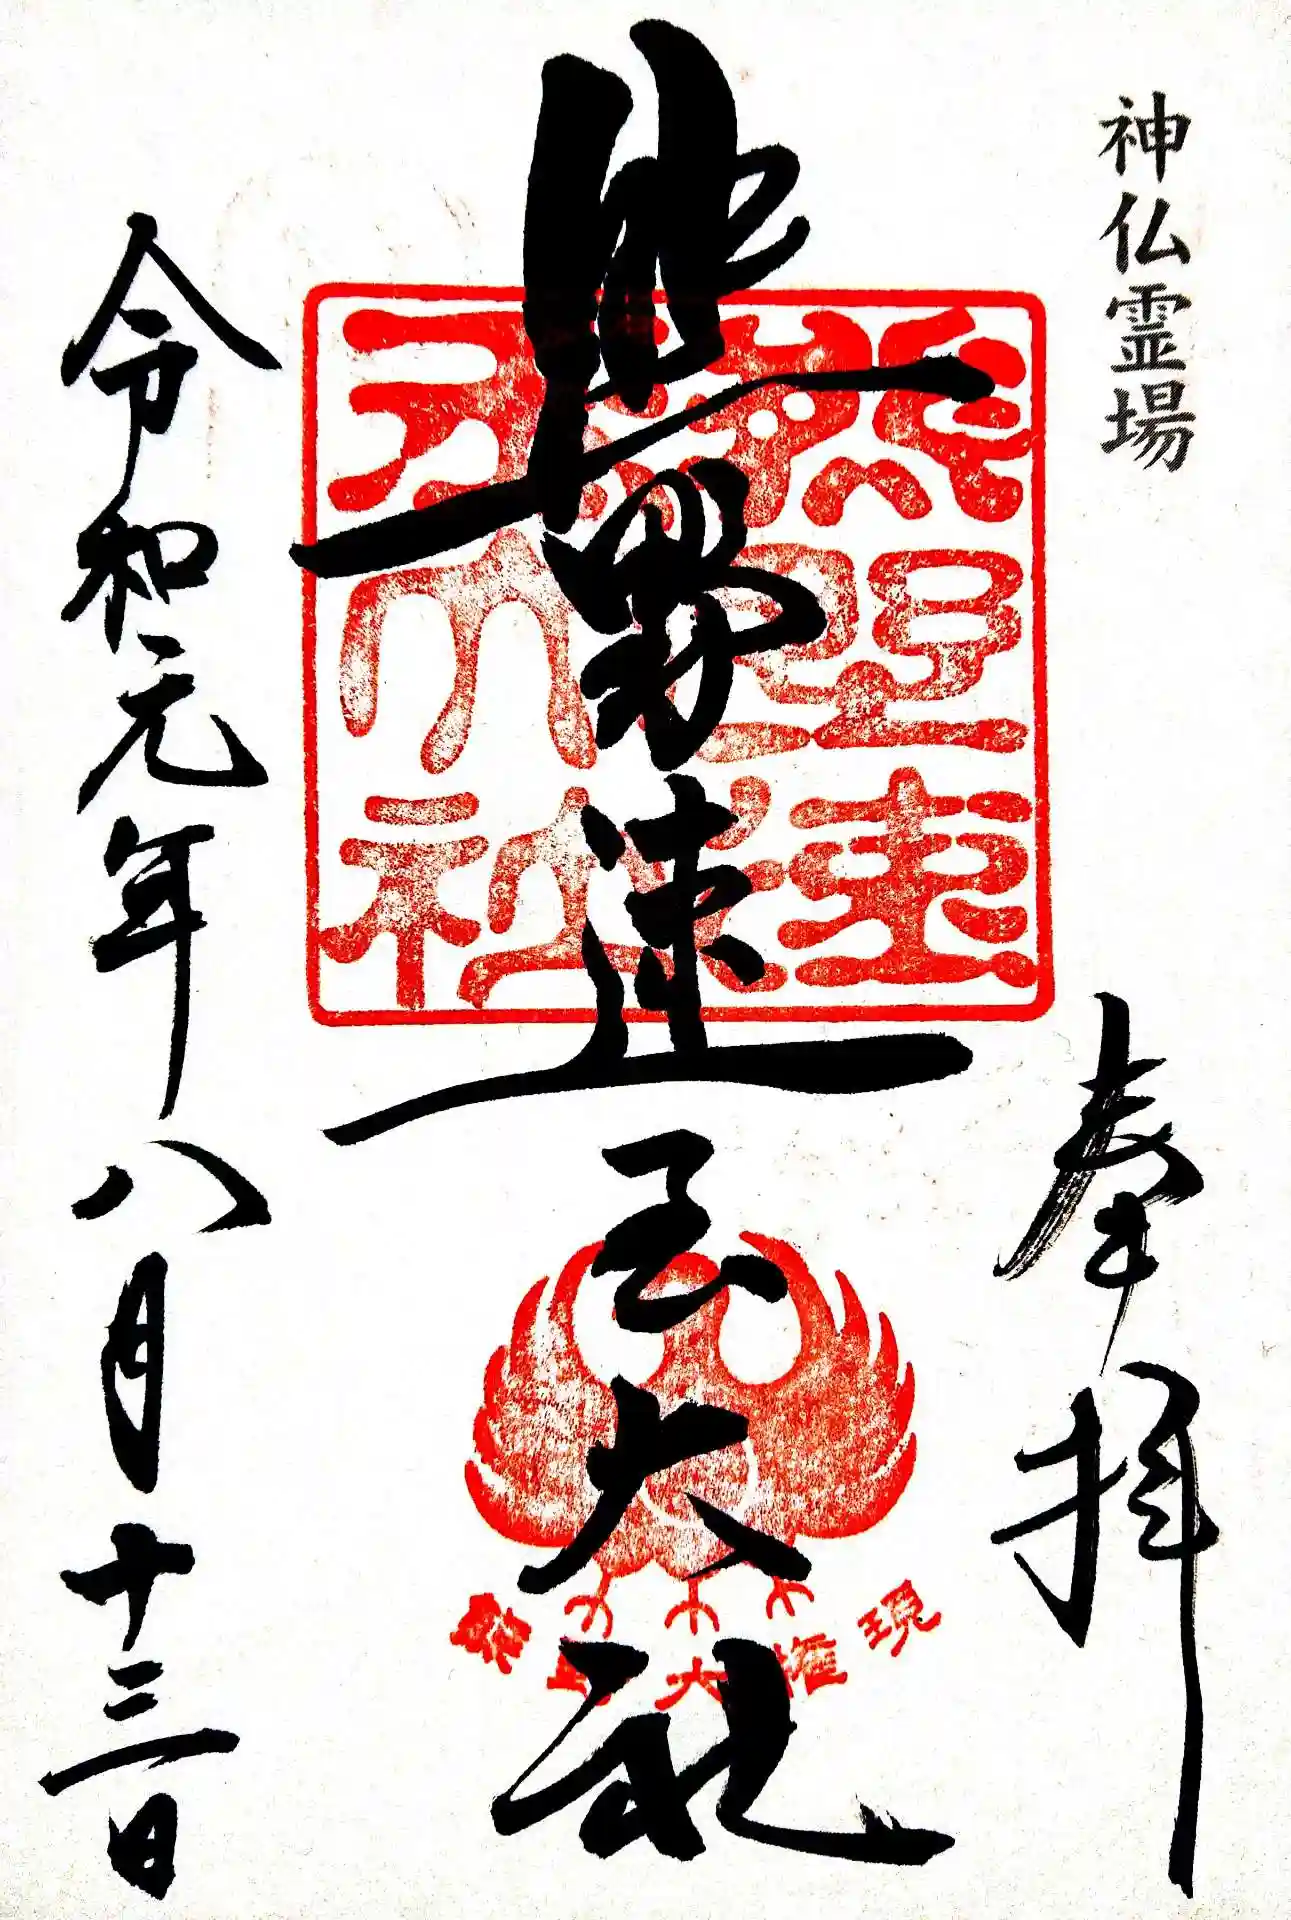 神仏霊場
奉拝
熊野速玉大社
熊野速玉大社
熊野大権現
令和元年八月十三日